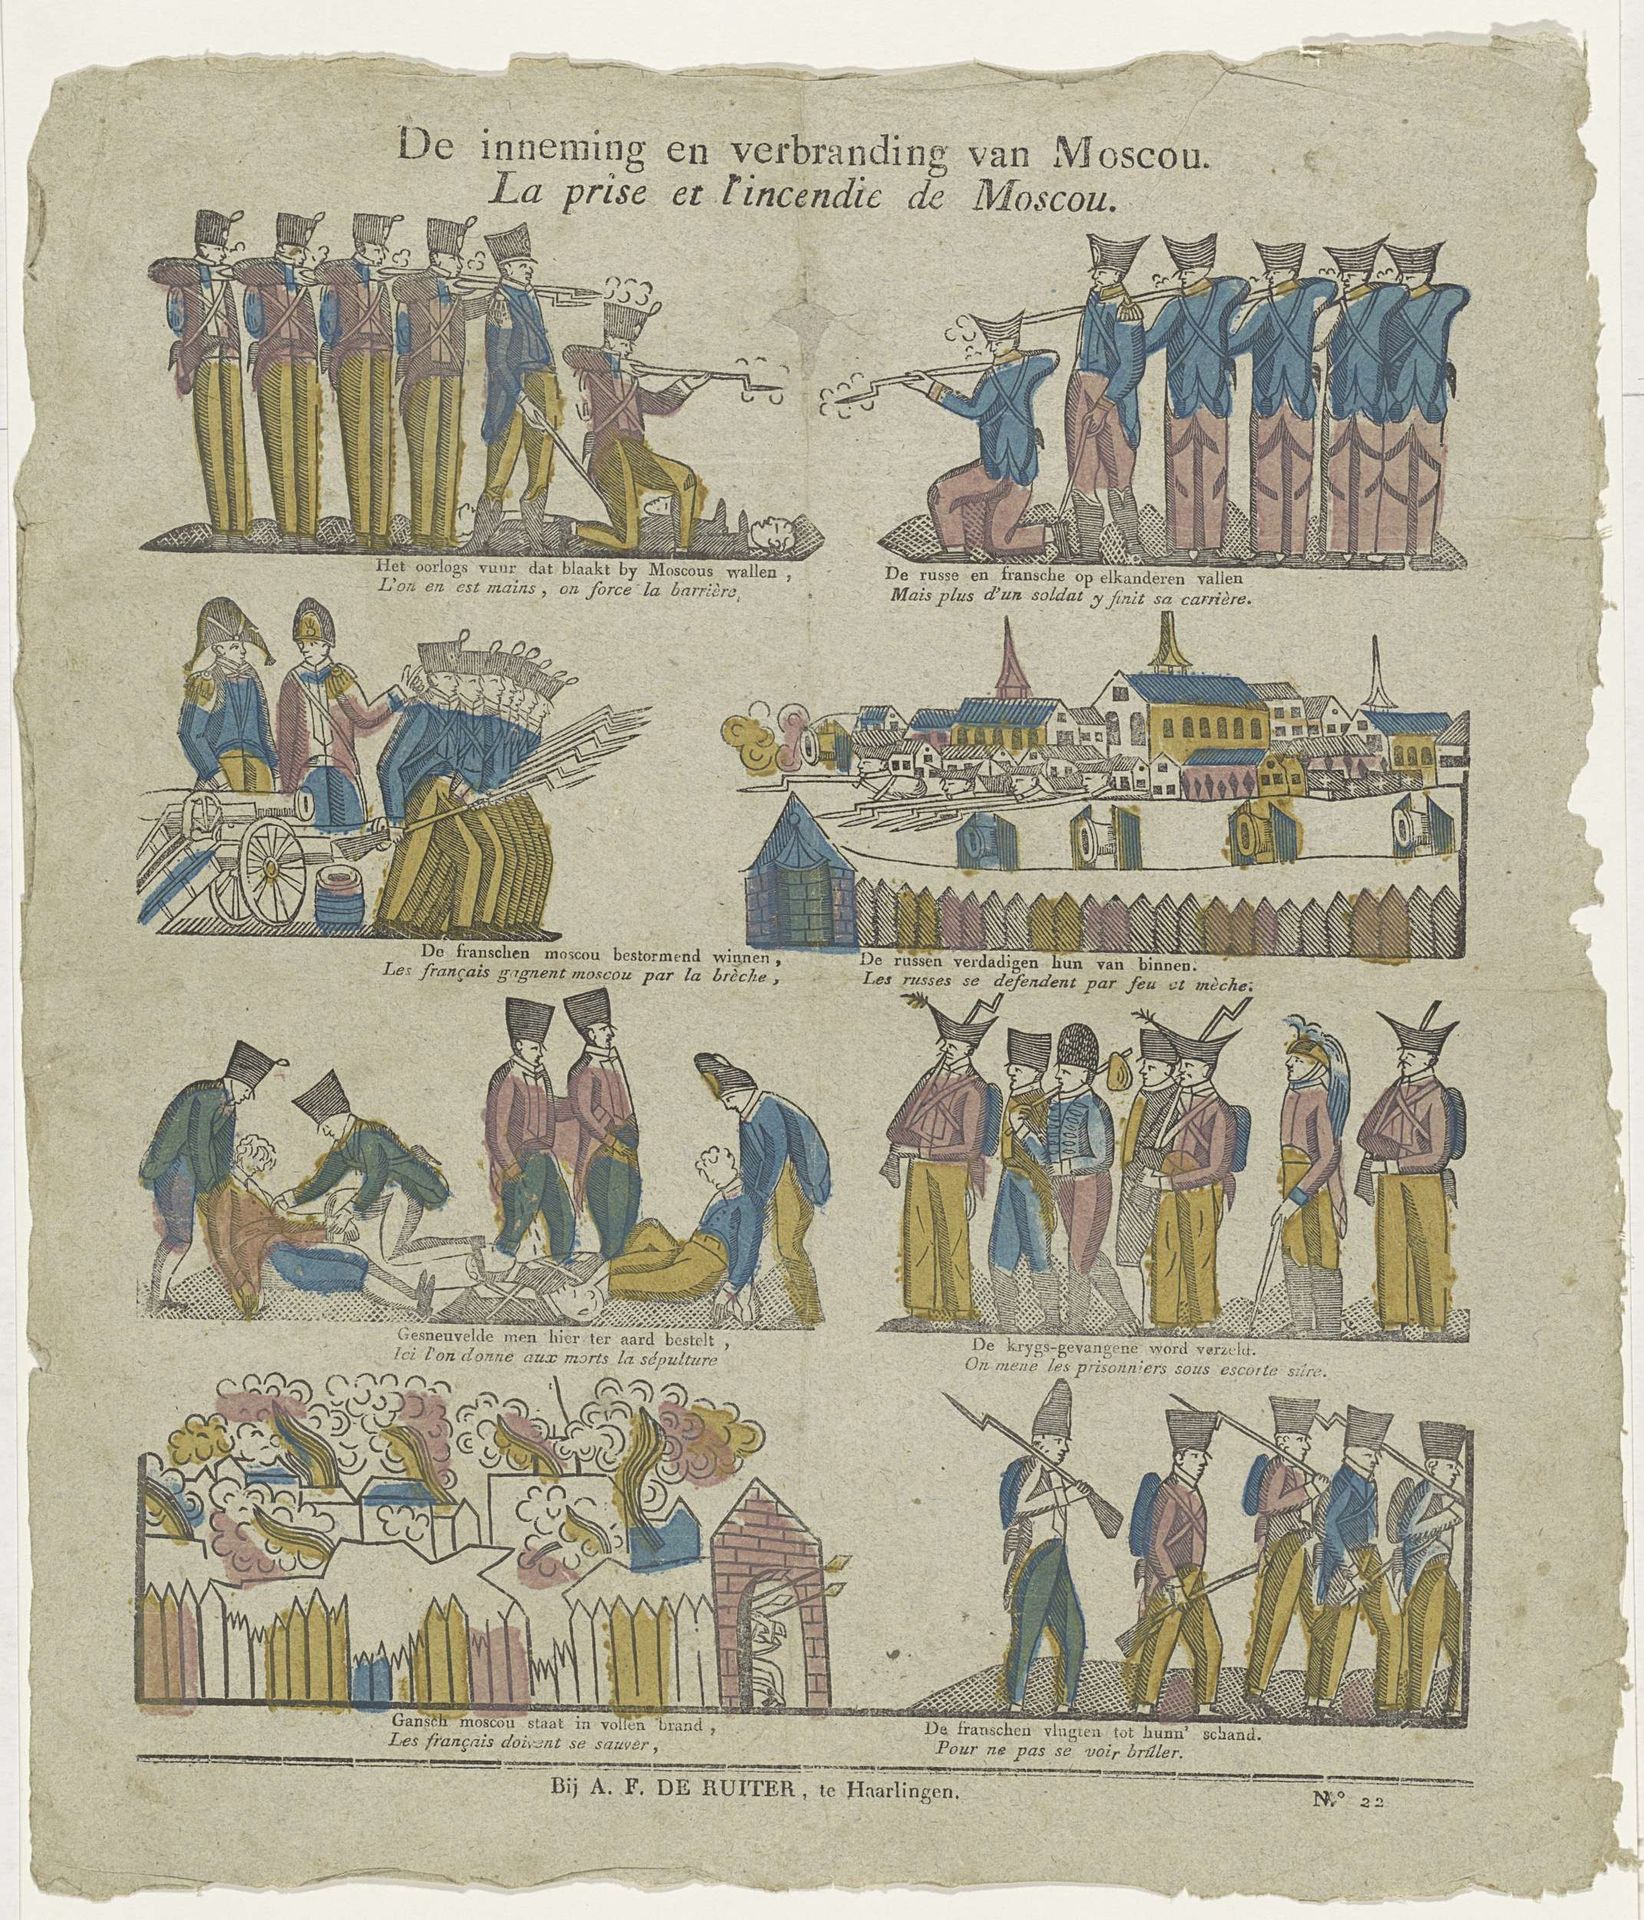 De inneming en verbranding van Moscou.
La prise et l'incendie de Moscou.
Het oorlogs vuur dat blaakt by Moscous wallen,
L'on en est mains, on force la barrière,
De russe en fransche op elkanderen vallen
Mais plus d'un soldat y finit sa carrière.
De franschen moscou bestormend winnen,
Les français gagnent moscou par la brèche,
De russen verdadigen hun van binnen.
Les russes se defendent par feu et mèche.
Gesneuvelde men hier ter aard bestelt,
Ici l'on donne aux morts la sépulture
De krygs-gevangene word verzeld.
On mene les prisonniers sous escorte sûre.
Gansch moscou staat in vollen brand,
Les français doivent se sauver,
De franschen vlugten tot hunn' schand.
Pour ne pas se voir brûler.
Bij A. F. DE RUITER, te Haarlingen.
N.° 22